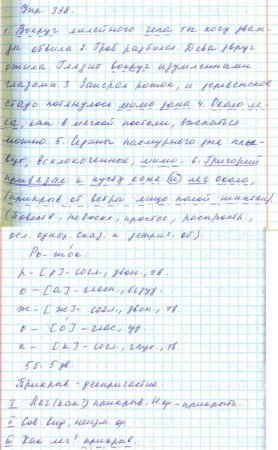 Упр. 338.
1. Вокруг лилейного чела ты косу дваж-
ды обвила 2. Гроб разбился. Дева вдруг
ожила. Глядит вокруг изумленными
глазами 3. Заиграл рожок, и деревенское
стадо потянулось мимо дома. 4. Около ле-
са, как в мягкой постели, выспаться
можно. 5. Седины пасмурного дня плы-
вут, всклокоченные, мимо. 6. Григорий
привязал к кусту коня и лёг около,
прикрыв от ветра лицо полой шинели.
(Повеств., невоскл., простое, распростр.,
осл. однор. сказ. и деприч. об.).
Ро-жо́к.
р-[р]-согл., звон., тв.
о-[а]-гласн., безуд.
ж-[ж]-согл., звон., тв.
о-[о́]-глас., уд.
к-[к]-согл., глух., тв.
5б. 5зв.
Прикрыв-деепричастие
I Лёг (как?) прикрыв. Н.ф-прикрыть
II Сов. вид, неизм. ф
III Как лёг? прикрыв.